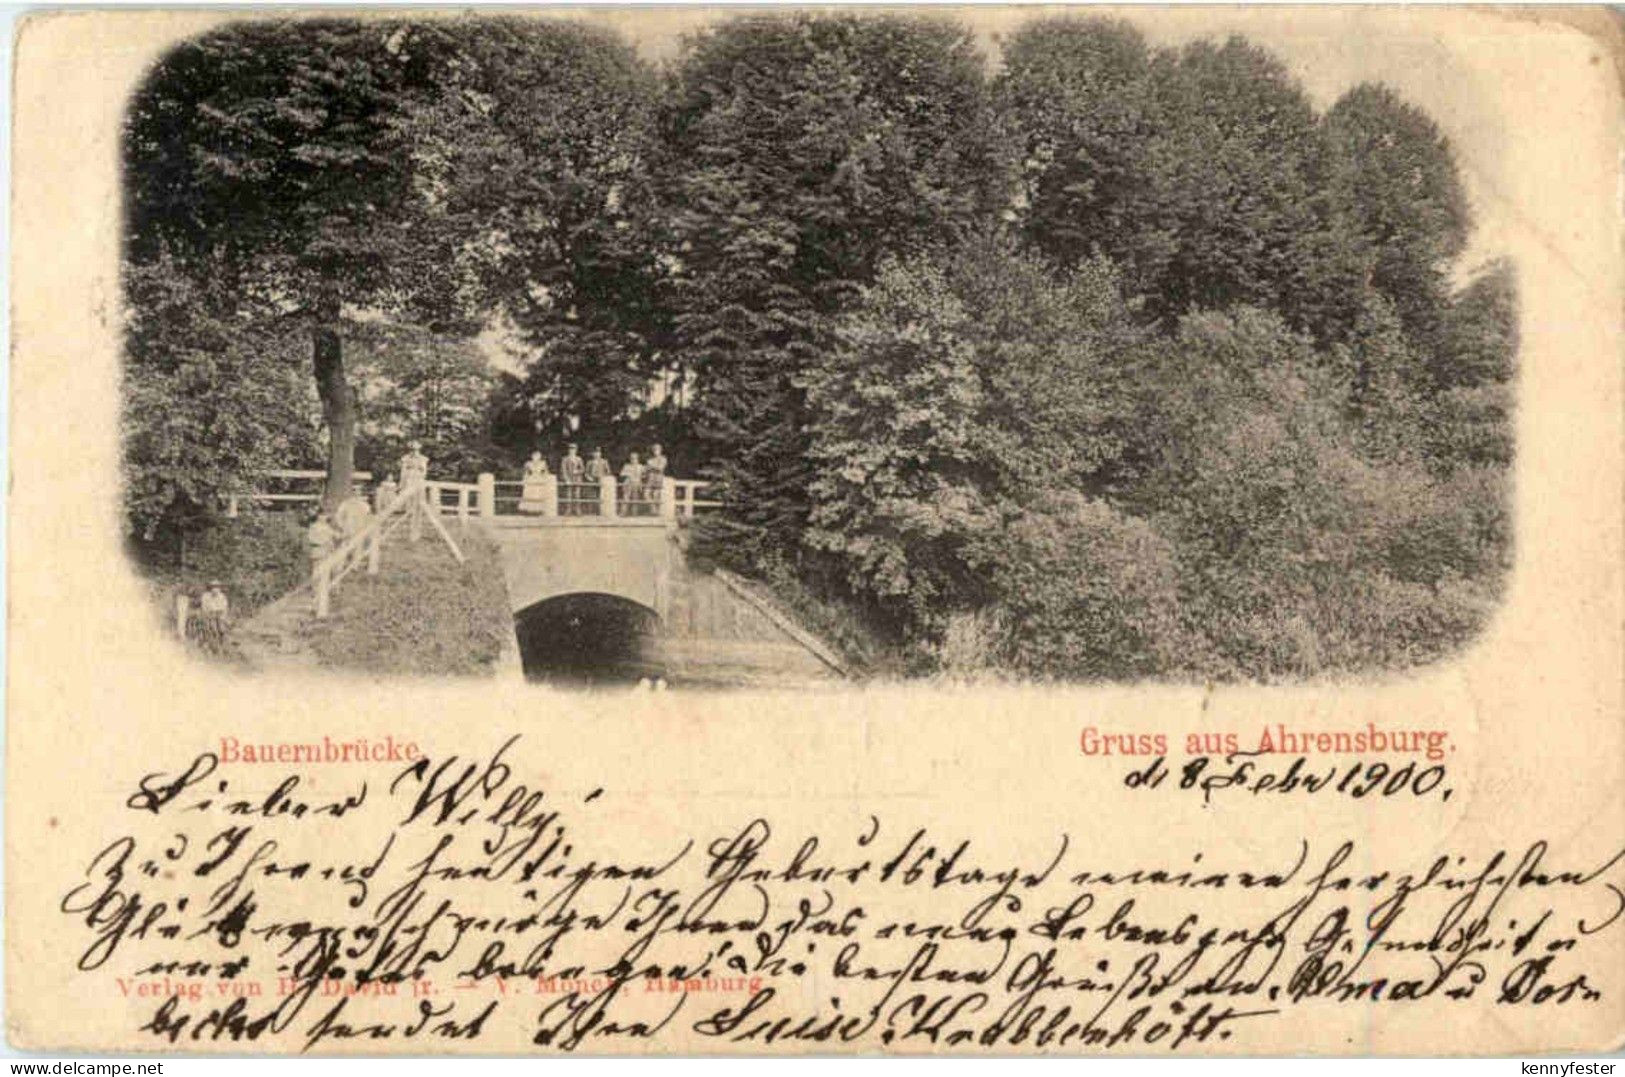 Bauernbrücke.
Gruss aus Ahrensburg.
d. 8 Febr 1900.
Lieber Willy!
Zu Ihrem heutigen Geburtstage meinen herzlichsten
Glückwunsch möge Ihnen das neue Lebensjahr Gesundheit u
nur Gutes bringen! Die besten Grüße an Oma u
sendet Ihre Luise Krabbenhöft.
Verlag von H. David jr. – V. Mönch, Hamburg
delcampe.net
kennyfester